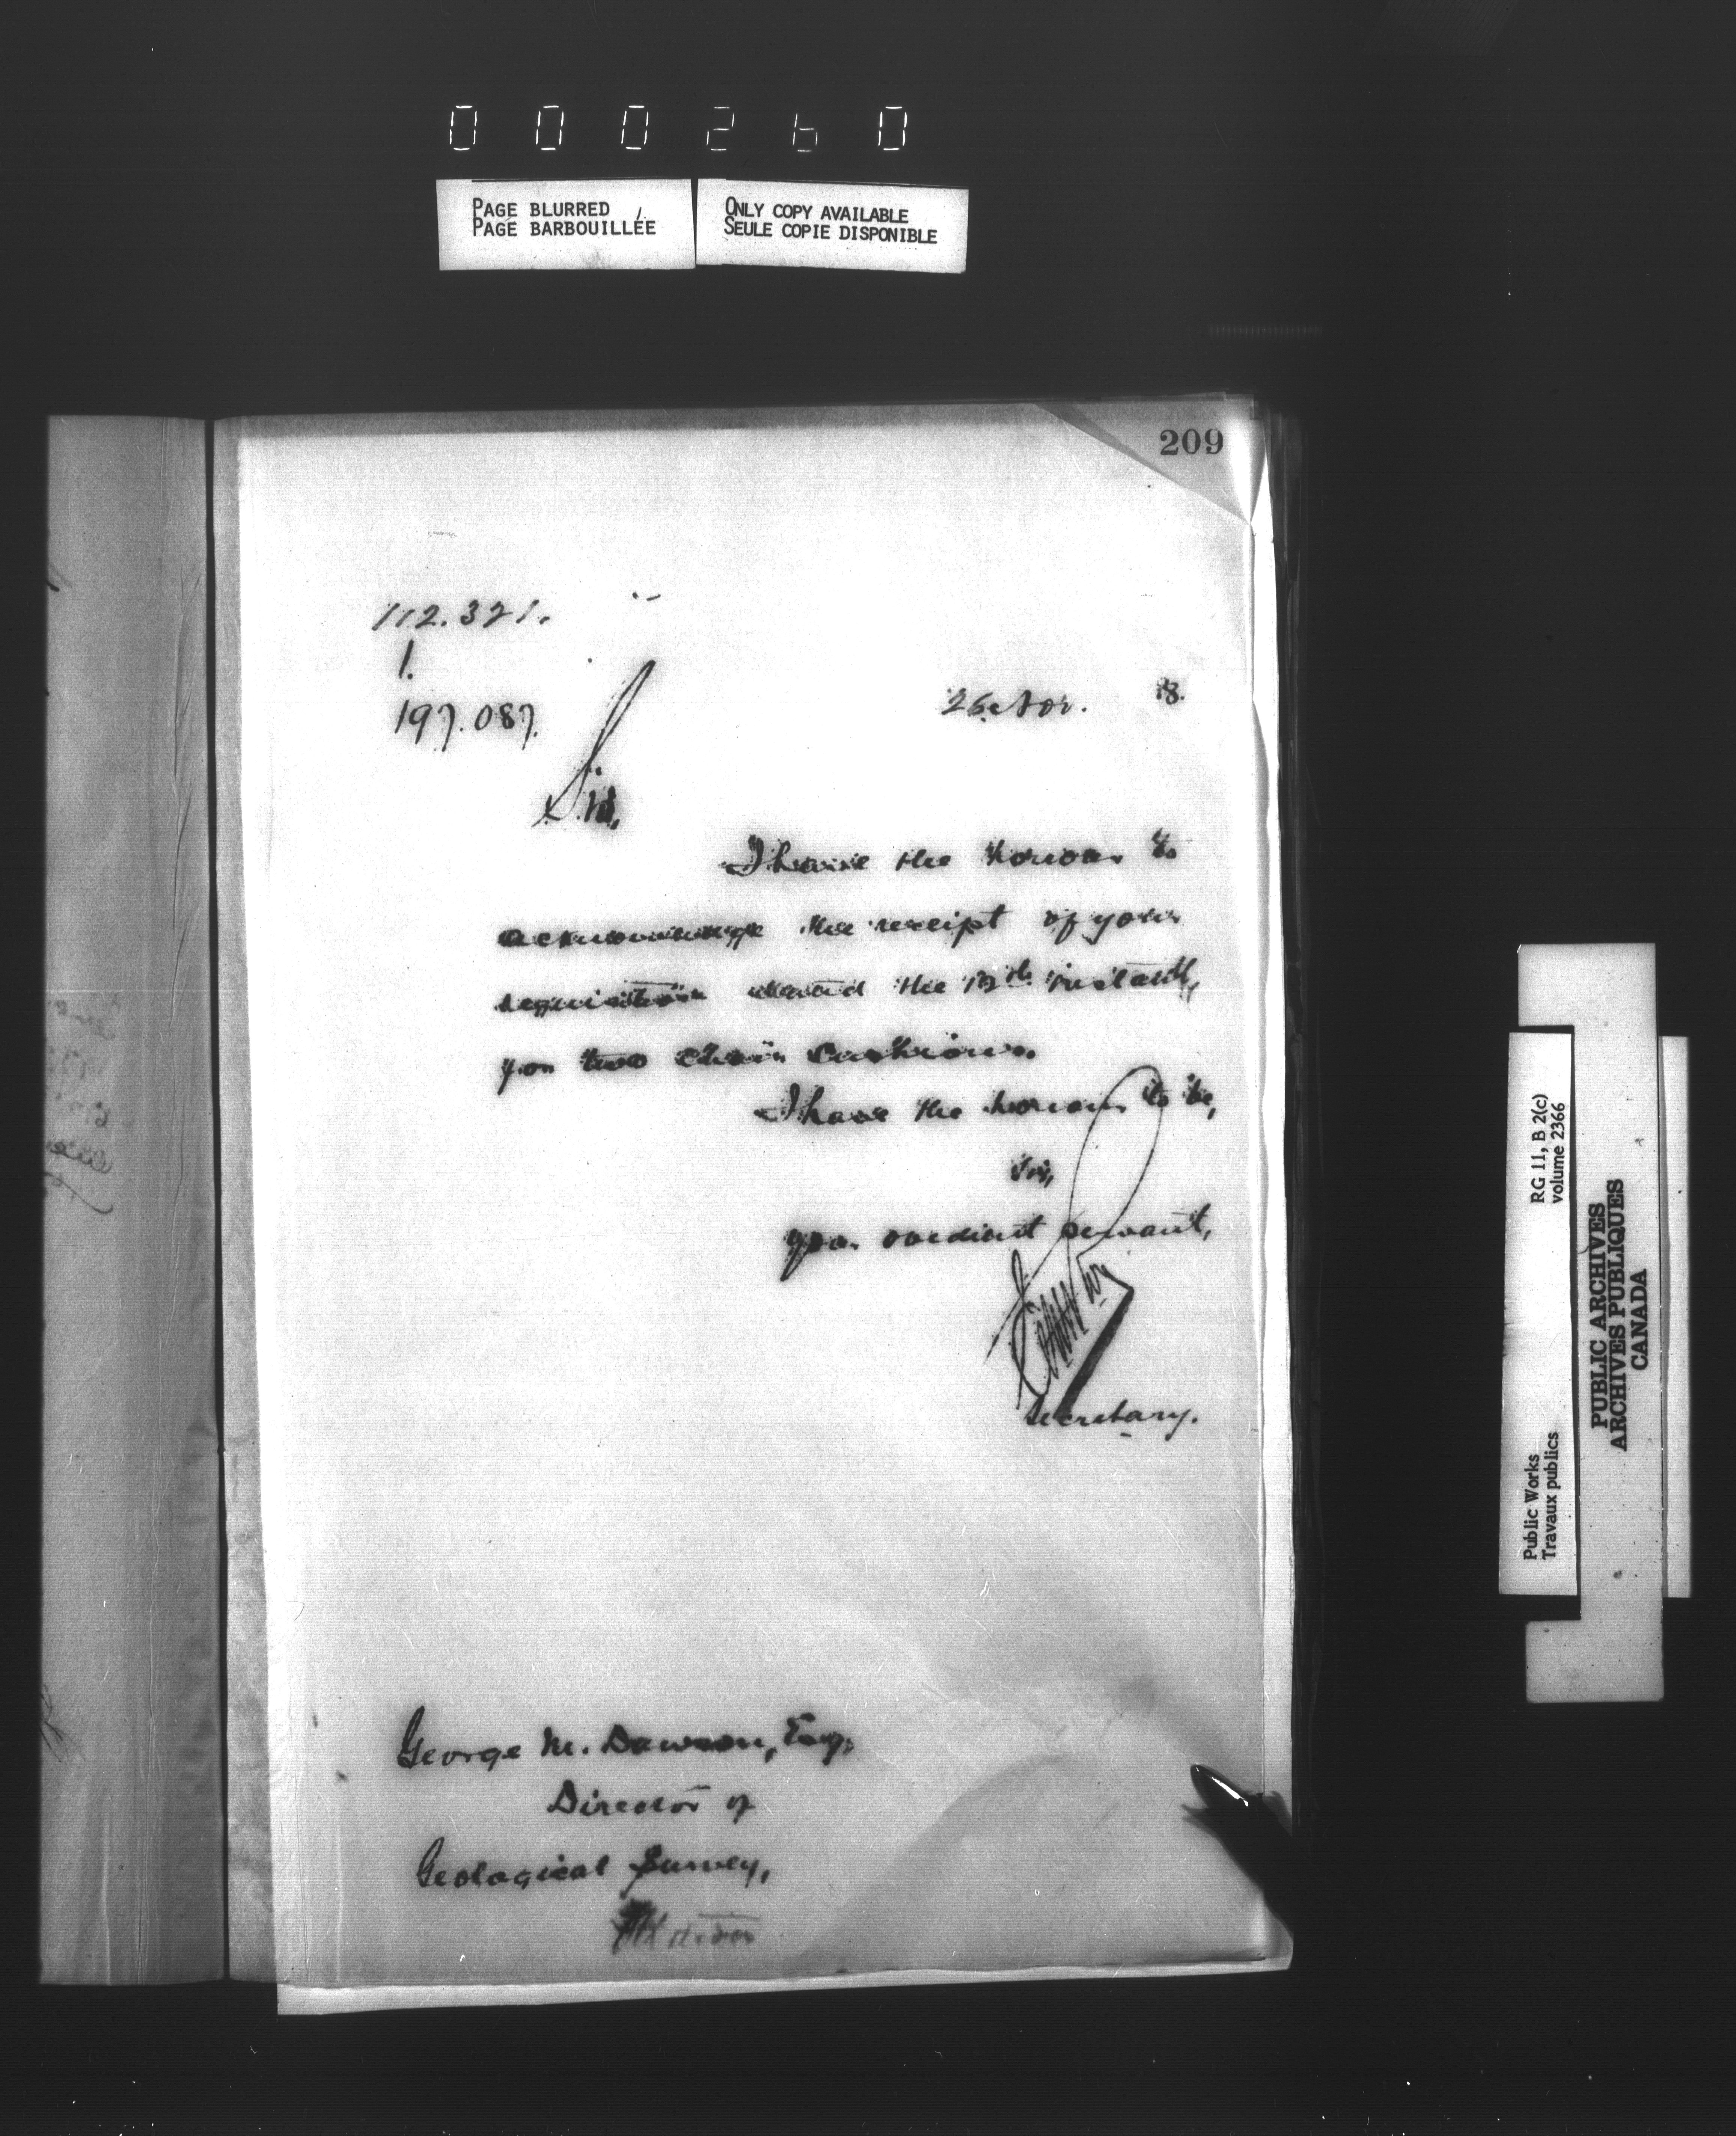 000260
PAGE BLURRED
PAGE BARBOUILLÉE
ONLY COPY AVAILABLE
SEULE COPIE DISPONIBLE
209
112.321.
1.
197.087.
Nov. 8.
Sir,
I have the honour to
acknowledge the receipt of your
requisition dated the instant,
for two chair cushions.
I have the honour to be,
Sir,
Your obedient servant,
Secretary.
George M. Dawson, Esq,
Director of
Geological Survey,
RG 11, B 2(c)
volume 2366
Public Works
Travaux publics
PUBLIC ARCHIVES
ARCHIVES PUBLIQUES
CANADA